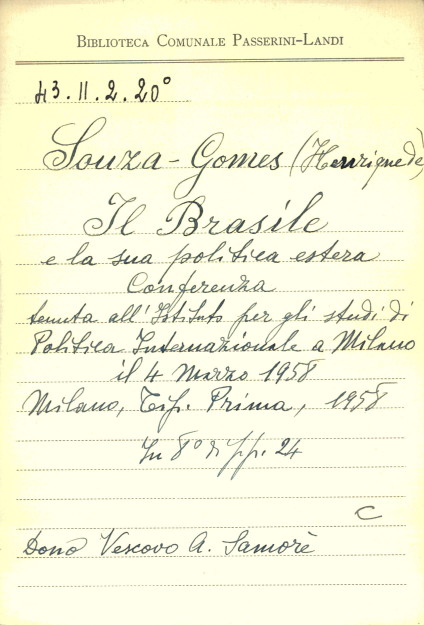 BIBLIOTECA COMUNALE PASSERINI-LANDI
43.II.2.20°
Souza-Gomes (Henrique de)
Il Brasile
e la sua politica estera
Conferenza
tenuta all'Istituto per gli studi di
Politica Internazionale a Milano
il 4 Marzo 1958
Milano, Tip. Prima, 1958
In 8° di pp. 24
C
Dono Vescovo A. Samorè